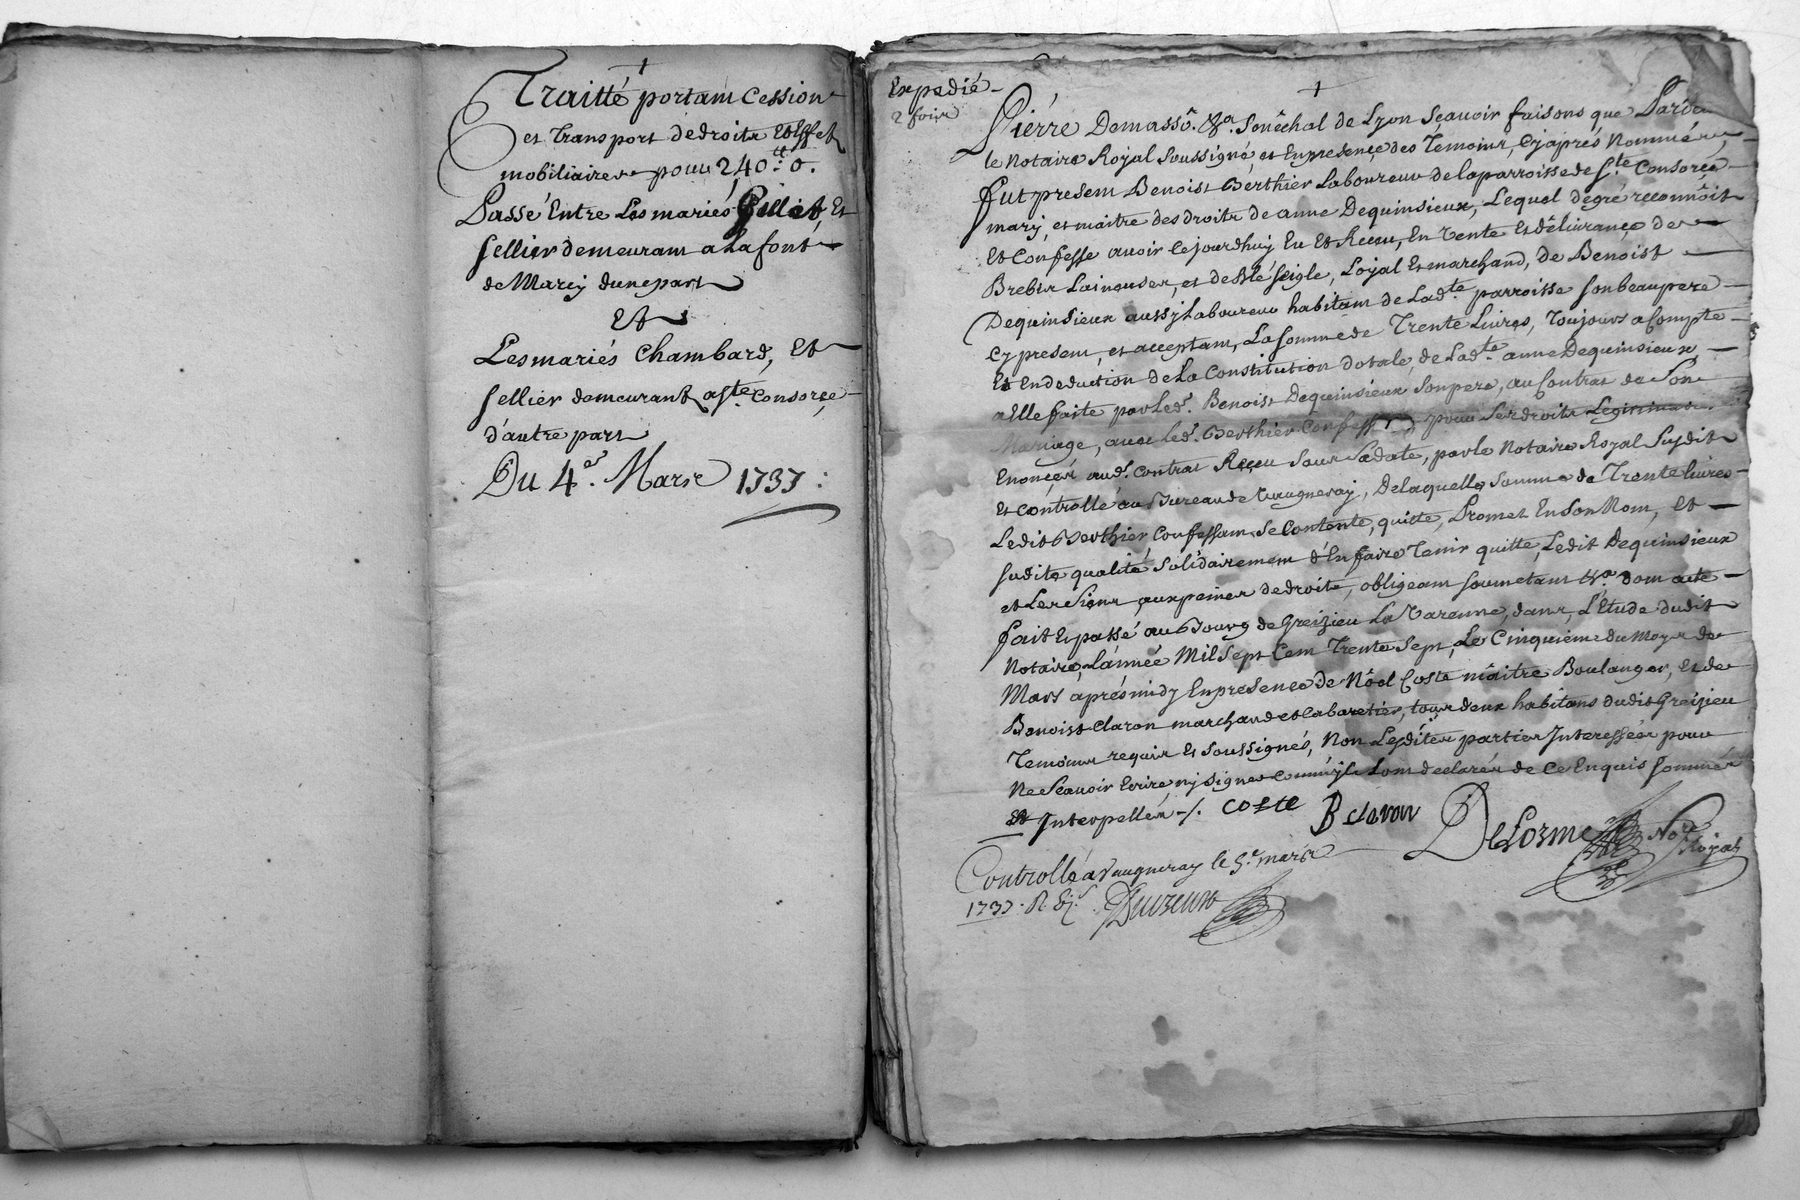 Traitté portam Cession
et Transport de droits et Effets
mobiliaires pour 240.ᵗᵗ 0.
Passé Entre Les mariés Gillet, Et
sellier demeuram a La font
de Marcy dune part
Et
Les mariés Chambard, Et
sellier demeurant a Ste. Consorçe
d'autre part
Du 4.e Mars 1737.
Expedié
2 fois
Pierre Demassô. &a. Senêchal de Lyon Sçavoir faisons que Pardt.
le Notaire Royal soussigné, et En presençe des Temoins, Cy après Nommés,
fut presem Benoist Berthier Laboureur de la parroisse de Ste. Consorçe
mary, et maitre des droits de anne Dequinsieux, Lequel de gré reconnôit
Et Confesse avoir Ce jourdhuy Eu Et Reçeu, En Vente Et dêlivrançe de
Brebis Laineuses, et de Blé seigle, Loyal Et marchand, de Benoist
Dequinsieux aussy Laboureur habitam de Ladte. parroisse son beaupere
Cy presem, et acceptam, La somme de Trente Livres, Toujours a Compte
Et En deduction de La Constitution dotale, de Ladte. anne Dequinsieux,
a Elle faite par Led. Benoist Dequinsieux son pere, au Contrat de Son
Mariage, avec Led. Berthier Confess pour ses droits Legitimaires
Enonçés aud. contrat Reçeu sous Sa date, par le Notaire Royal Susdit
Et Controllé au Bureau de Vaugneray, De laquelle somme de Trente livres
Ledit Berthier Confessam, se Contente, quitte, Promet En son Nom, et
sudite qualité solidairement d'En faire Tenir quitte, Ledit Dequinsieux
et Les Siens aux peines de droits, obligeam soumetam &a. dom acte
fait Et passé au Bourg de Greizieu La Varenne, dans, L'Etude dudit
Notaire, L'année Mil Sept Cem Trente Sept, Le Cinquieme du Moys de
Mars après midy En presençe de Nôel Coste maître Boulanger, Et de
Benoist Claron marchand et Cabaretier, tous deux habitans dudit Greizieu
Temoins requis Et soussignés, Non Lesdites parties Interessées pour
Ne Sçavoir Ecrire, ny signer comm'ils Lom declarés de Ce Enquis sommés
Et Interpellés ./. Coste B claron DeLorme Nore. Royal
Controllé a Vaugneray le 5.e mars
1737. R. Duzeurs